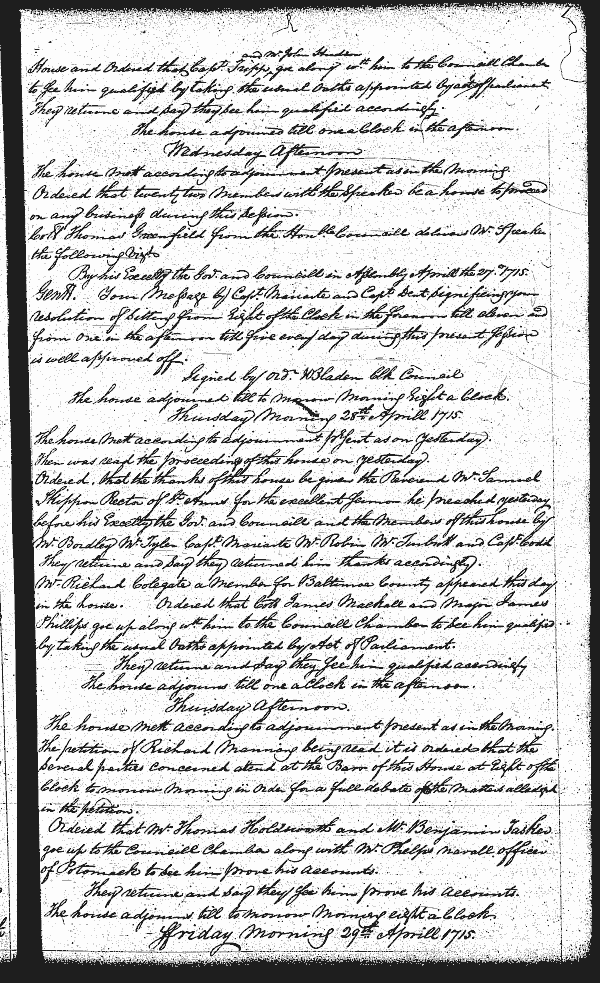 and Mr John Hudson
House and Ordered that Capt. Tripp, goe along wth him to the Councill Chamber
to see him qualified by taking the usual Oaths appointed by act of parliament
They returne and say they see him qualified accordingly.
The house adjourned till one a Clock in the afternoon.
Wednesday Afternoon
The house mett according to adjournment present as in the Morning
Ordered that twenty two Members with the Speaker be a house to proceed
on any business during this Session.
Collo Thomas Greenfield from the Honble Councill delivers Mr Speaker
the following Vizt.
By his Excelly the Govr. and Councill in Assembly Aprill the 27th 1715.
Gentn. Your Message by Capt. Mariarte and Capt. Dent signifieing your
resolution of Sitting from Eight of the Clock in the forenoon till eleven and
from One in the afternoon till five every day during this present Session
is well approved off.
Signed by ordr. W Bladen Clk Council
The house adjourned till to morrow Morning Eight a Clock.
Thursday Morning 28th Aprill 1715.
The house Mett according to adjournment present as on yesterday.
Then was read the proceedings of this house on yesterday.
Ordered. that the thanks of this house be given the Reverend Mr. Samuel
Skippon Rector of St. Annes for the excellent sermon he preached yesterday
before his Excelly the Govr. and Councill and the Members of this house by
Mr. Bordley Mr. Tyler Capt. Mariarte Mr. Robins Mr. Turbutt and Capt. Codd
They returne and say they returned him thanks accordingly.
Mr. Richard Colegate a Member for Baltimore County appeared this day
in the house. Ordered that Collo James Mackall and Major James
Phillips goe up along wth him to the Councill Chamber to see him qualified
by taking the usual Oaths appointed by Act of Parliament.
They returne and say they see him qualified accordingly
The house adjourns till one a Clock in the afternoon.
Thursday Afternoon.
The house mett according to adjournment present as in the Morning.
The petition of Richard Manning being read it is ordered that the
several parties concerned attend at the Barr of this House at Eight of the
Clock to morrow Morning in order for a full debate of the Matters alledged
in the petition.
Ordered that Mr. Thomas Holdsworth and Mr. Benjamin Tasker
goe up to the Councill Chamber along with Mr. Phelps navall officer
of Potomack to see him prove his accounts.
They returne and say they see him prove his accounts.
The house adjourns till to morrow Morning eight a Clock.
Friday Morning 29th Aprill 1715.